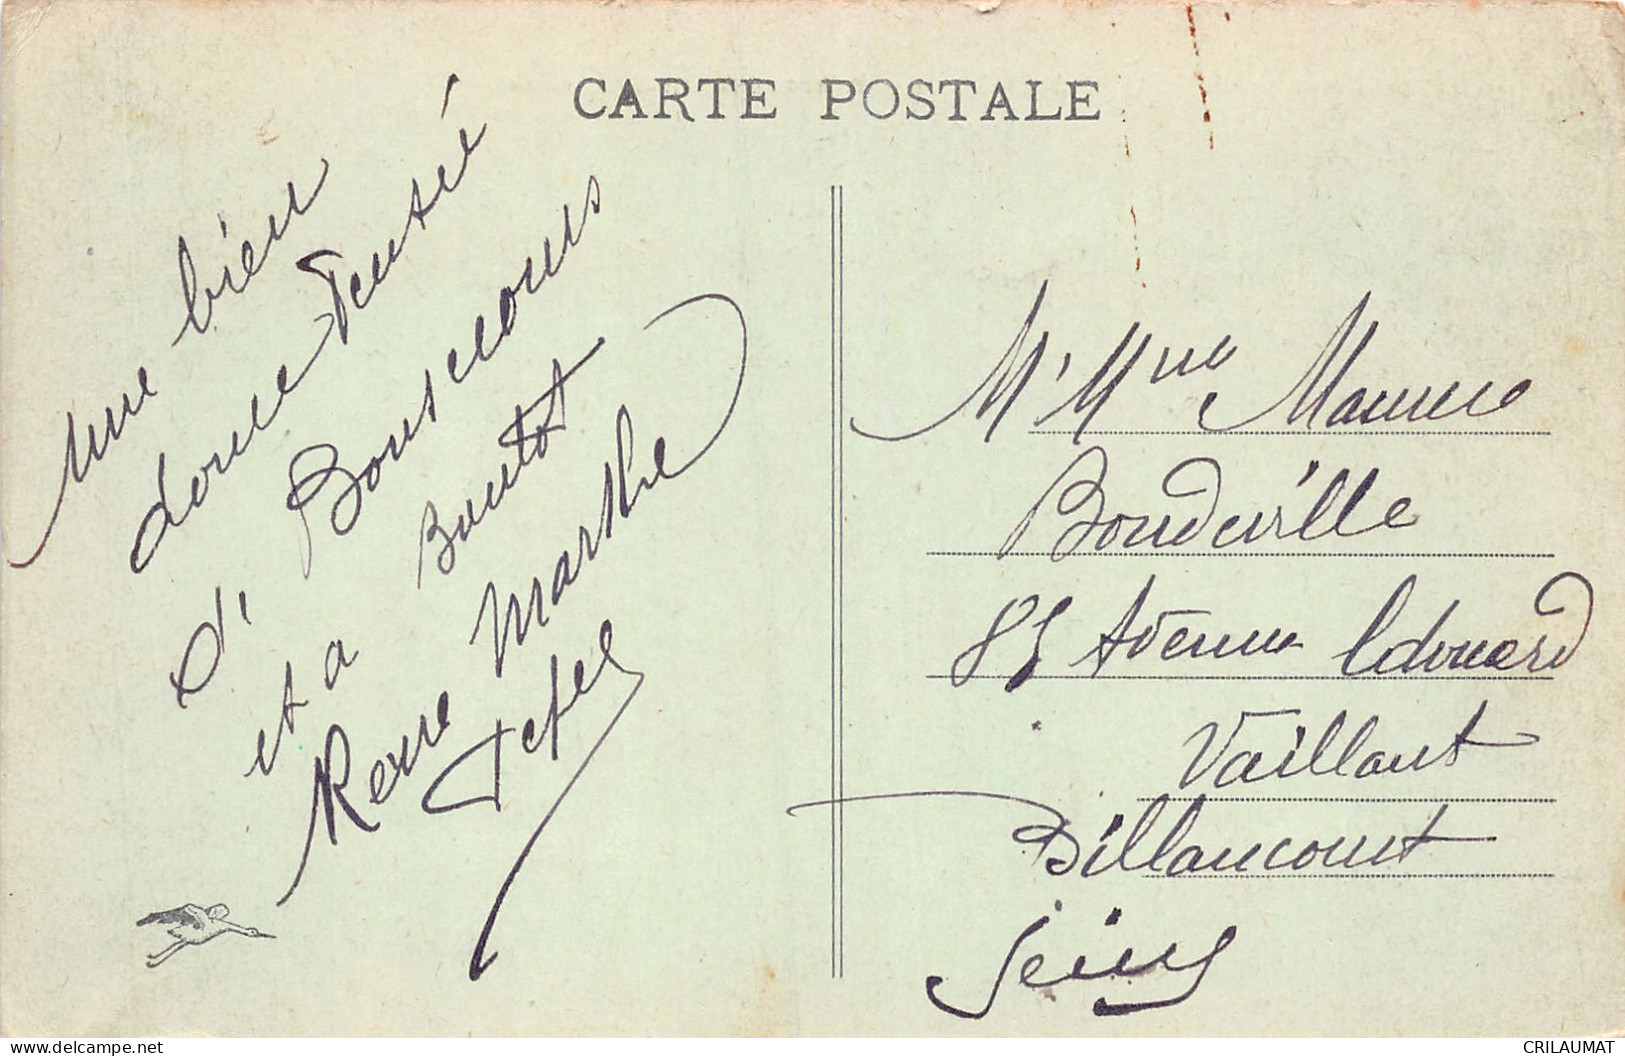 CARTE POSTALE
une bien
douce Pensé
d' Bons
et a Bientot
Marthe
Mr Mme Maurice
Boudeville
85 Avenue Edouard
Vaillant
Billancourt
Seine
www.delcampe.net
CRILAUMAT